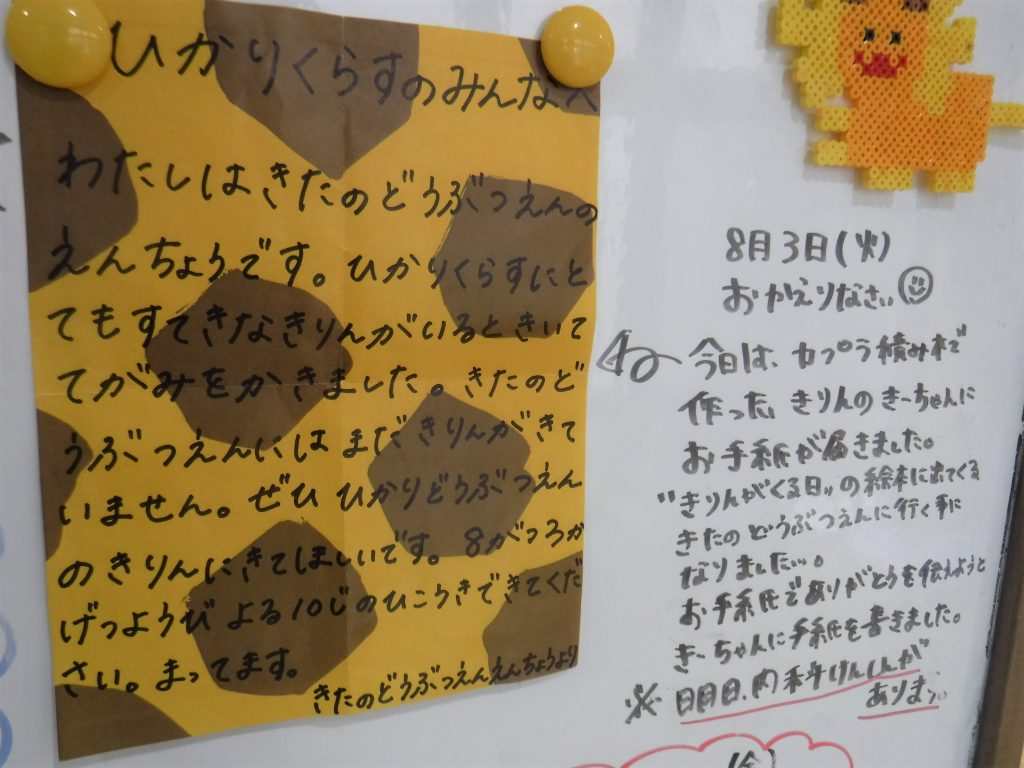 ひかりくらすのみんなへ
わたしはきたのどうぶつえんの
えんちょうです。ひかりくらすにと
てもすてきなきりんがいるときいて
てがみをかきました。きたのど
うぶつえんにはまだきりんがきて
いません。ぜひひかりどうぶつえん
のきりんにきてほしいです。8がつ3か
げつようび よる10じのひこうきできてくだ
さい。まってます。
きたのどうぶつえんえんちょうより
8月3日(火)
おかえりなさい
今日は、カプラ積み木で
作った、きりんのきーちゃんに
お手紙が届きました。
"きりんがくる日"の絵本に出てくる
きたのどうぶつえんに行く事に
なりました…。
お手紙でありがとうを伝えようと
きーちゃんに手紙を書きました。
※ 明日、内科けんしんが
あります。
(金)